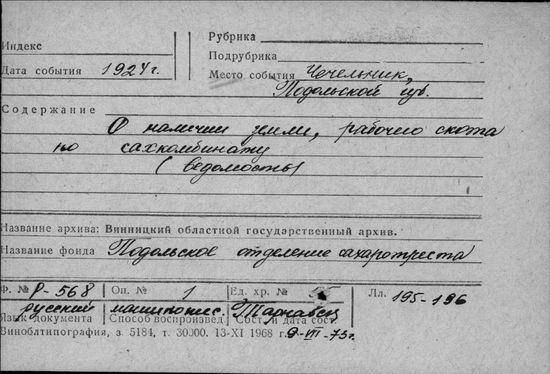 Индекс
Рубрика
Подрубрика
Дата события 1924 г.
Место события Чечельник,
Подольской губ.
Содержание
О наличии земли, рабочего скота
по сахкомбинату
(ведомость)
Название архива: Винницкий областной государственный архив.
Название фонда Подольское отделение сахаротреста
Ф. № Р-568 Оп. № 1 Ед. хр. № Лл. 195-196
русский машинопис.
Язык документа Способ воспроизвед. Сост. и дата сост.
Виноблтипография, з. 5184, т. 30000. 13-XI 1968 г. 9-VII-73г.